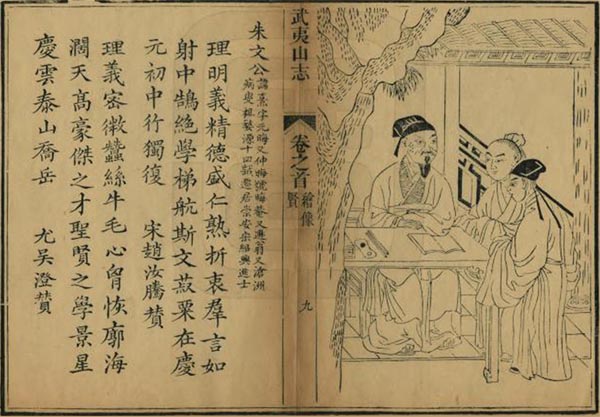 武夷山志
卷之首
繪像
賢
九
朱文公
諱熹字元晦又仲晦號晦菴又遯翁又滄洲
病叟婺源十四歲遷居崇安宋紹興進士
理明義精德盛仁熟折衷羣言如
射中鵠絶學梯航斯文菽粟在慶
元初中行獨復 宋趙汝騰贊
理義密微蠶絲牛毛心胷恢廓海
濶天髙豪傑之才聖賢之學景星
慶雲泰山喬岳 元吳澄贊